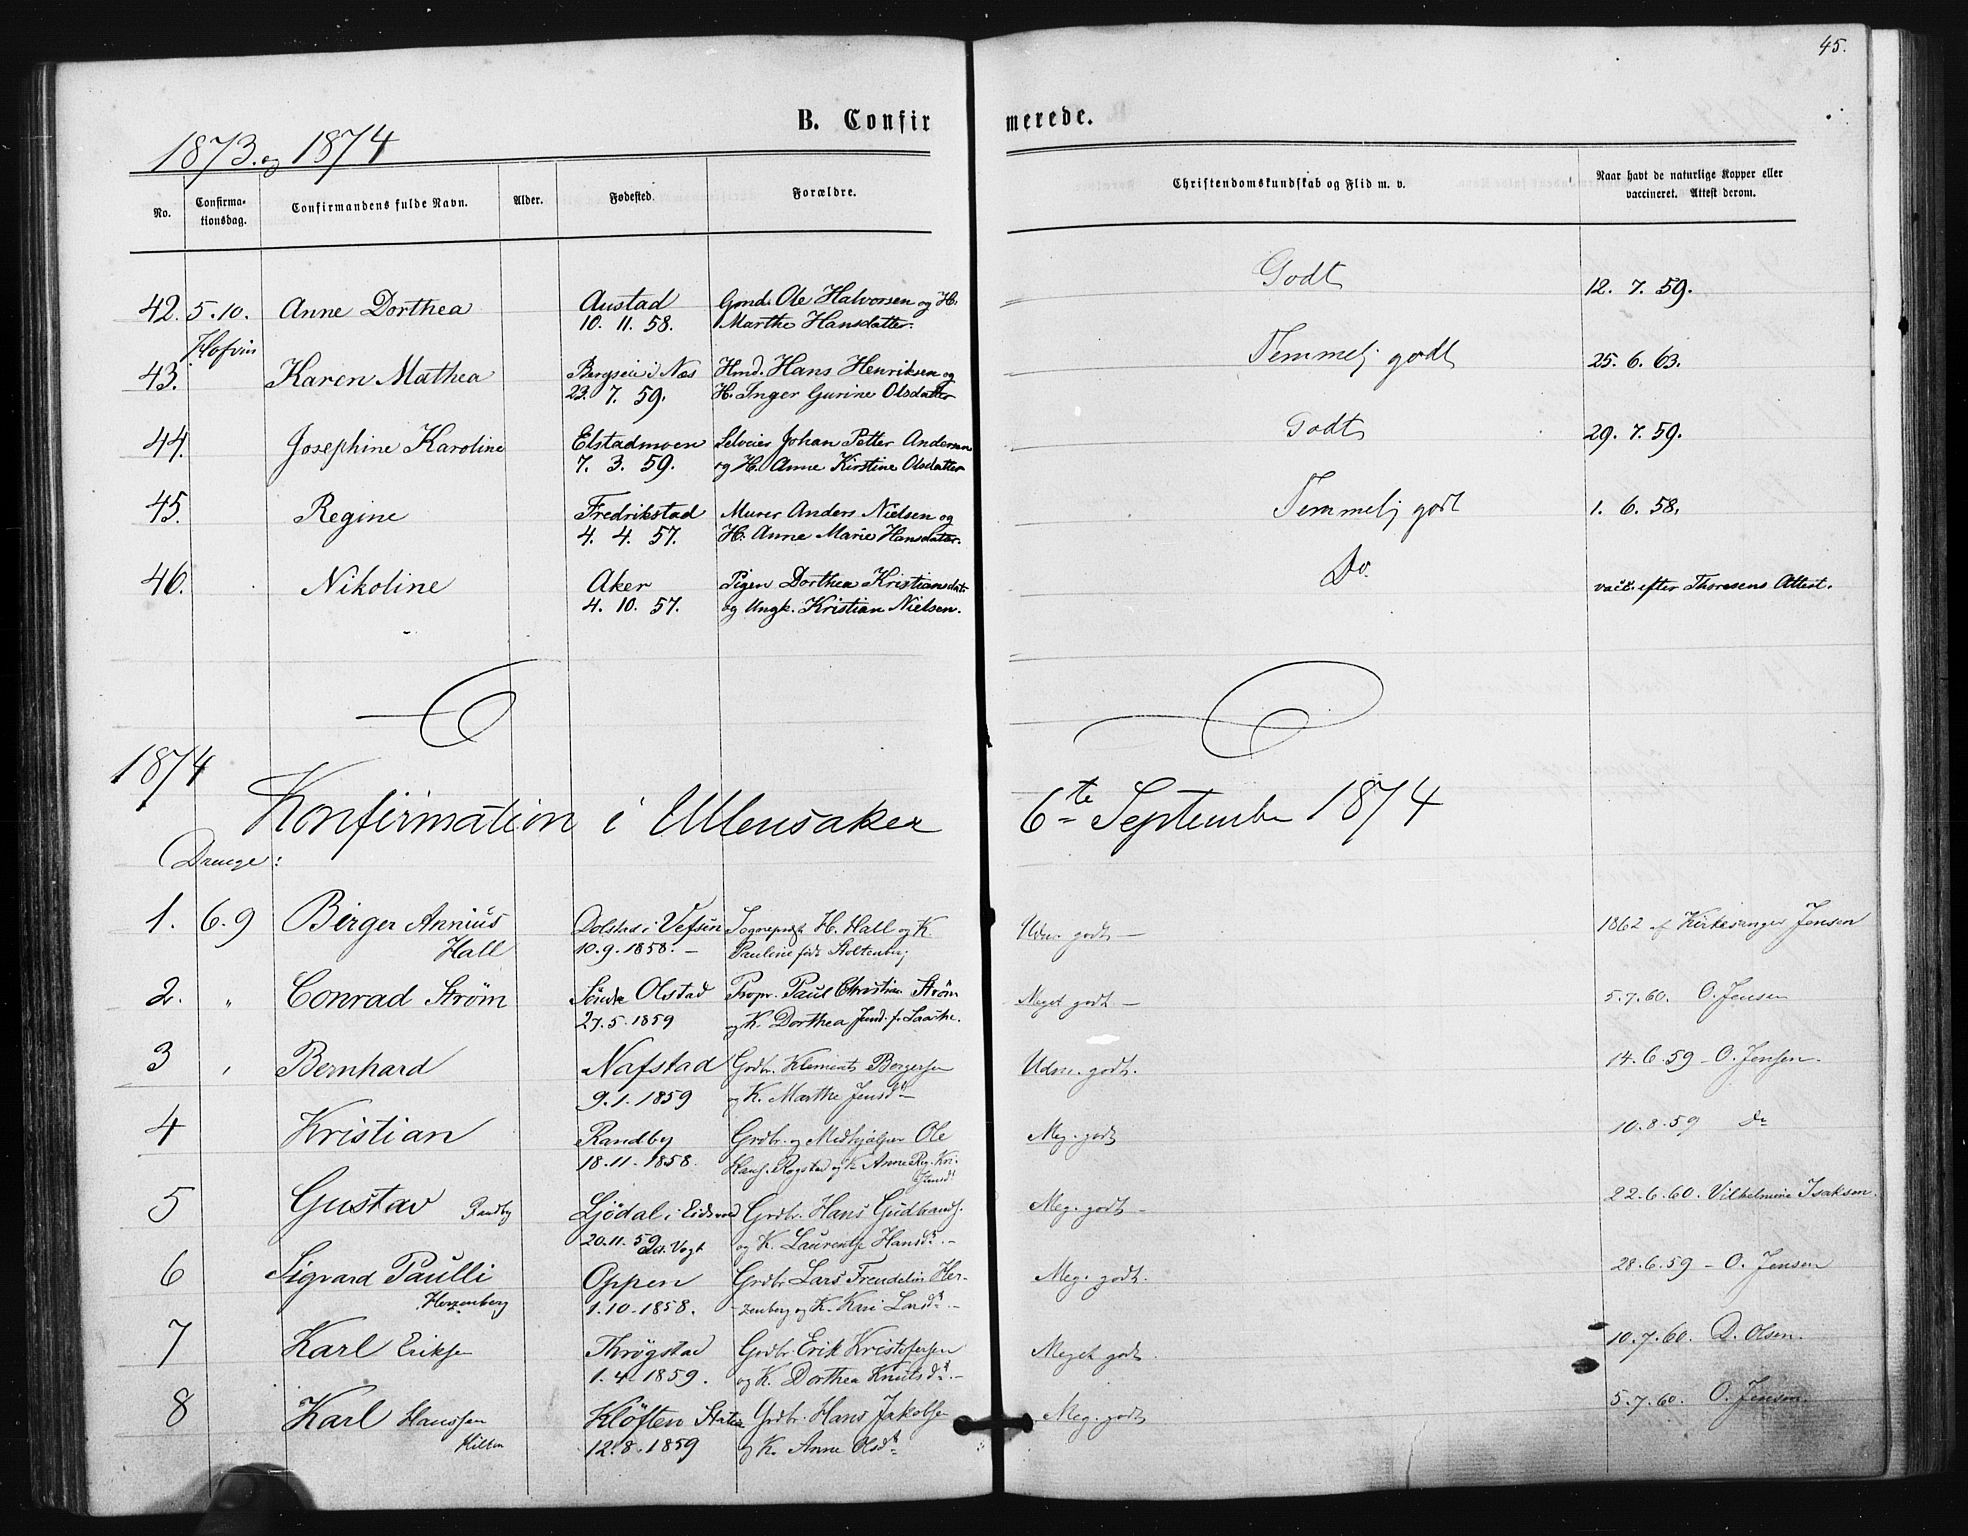 45.
B. Confirmerede.
1873. og 1874
No. Confirma-tionsdag. Confirmandens fulde Navn. Alder. Fødested. Forældre. Christendomskundskab og Flid m. v. Naar havt de naturlige Kopper eller vaccineret. Attest derom.
42. 5.10. Anne Dorthea Austad Gmd. Ole Halvorsen og H. Godt 12. 7. 59.
10. 11. 58. Marthe Hansdatter.
Hofvin
43. Karen Mathea Bergseie i Næs Hmd. Hans Henriksen og Temmelig godt 25. 6. 63.
23. 7. 59. H. Inger Gurine Olsdatter
44. Josephine Karoline Elstadmoen Selveier Johan Petter Andersen Godt 29. 7. 59.
7. 3. 59. og H. Anne Kirstine Olsdatter
45. Regine Fredrikstad Murer Anders Nielsen og Temmelig godt 1. 6. 58.
4. 4. 57. H. Anne Marie Hansdatter.
46. Nikoline Aker Pigen Dorthea Kristiansdatr Do. vacc. efter Thoresens Attest.
4. 10. 57. og Ungk. Kristian Nielsen.
1874
Konfirmation i Ullensaker 6te September 1874
Drenge:
1. 6.9 Birger Annius Dolstad i Vefsen Sogneprest H. Hall og K. Udm. godt — 1862 af Kirkesanger Jensen
Hall 10.9.1858. — Pauline født Stoltenberg
2. " Conrad Strøm Søndre Olstad Propr. Paul Christian Strøm Meget godt — 5.7.60. O. Jensen
27.5.1859 og K. Dorthea
3 " Bernhard Nafstad Grdbr. Klement Borgersen Udm. godt. 14.6.59 - O. Jensen.
9.1.1859 og K. Marthe Jensd.
4 Kristian Randby Grdbr. og Medhjælper Ole Meg. godt 10.8.59 Do
18.11.1858. Hans. Rogstad og K. Anne Reg. Kri-
stensd.
5 Gustav Randby Ljødal i Eidsvold Grdbr. Hans Gudbrands. Meg. godt - 22.6.60. Vilhelmine Isaksen.
20.11.59 og K. Laurentse Hansdr. -
6 Sigvard Paulli Oppen Grdbr Lars Frendelin Her- Meg. godt. 28.6.59 - O. Jensen
Herzenberg 1.10.1858. zenberg og K. Kari Larsdr. -
7 Karl Eriksen Thrøgstad Grdbr. Erik Kristofersen Meget godt. 10.7.60. D. Olsen.
1.4.1859. og K. Dorthea Knutsdr. -
8 Karl Hanssen Kløften Station Grdbr. Hans Jakobsen Meg. godt 5.7.60. O. Jensen.
Hilten 12.8.1859 og K. Anne Olsdr